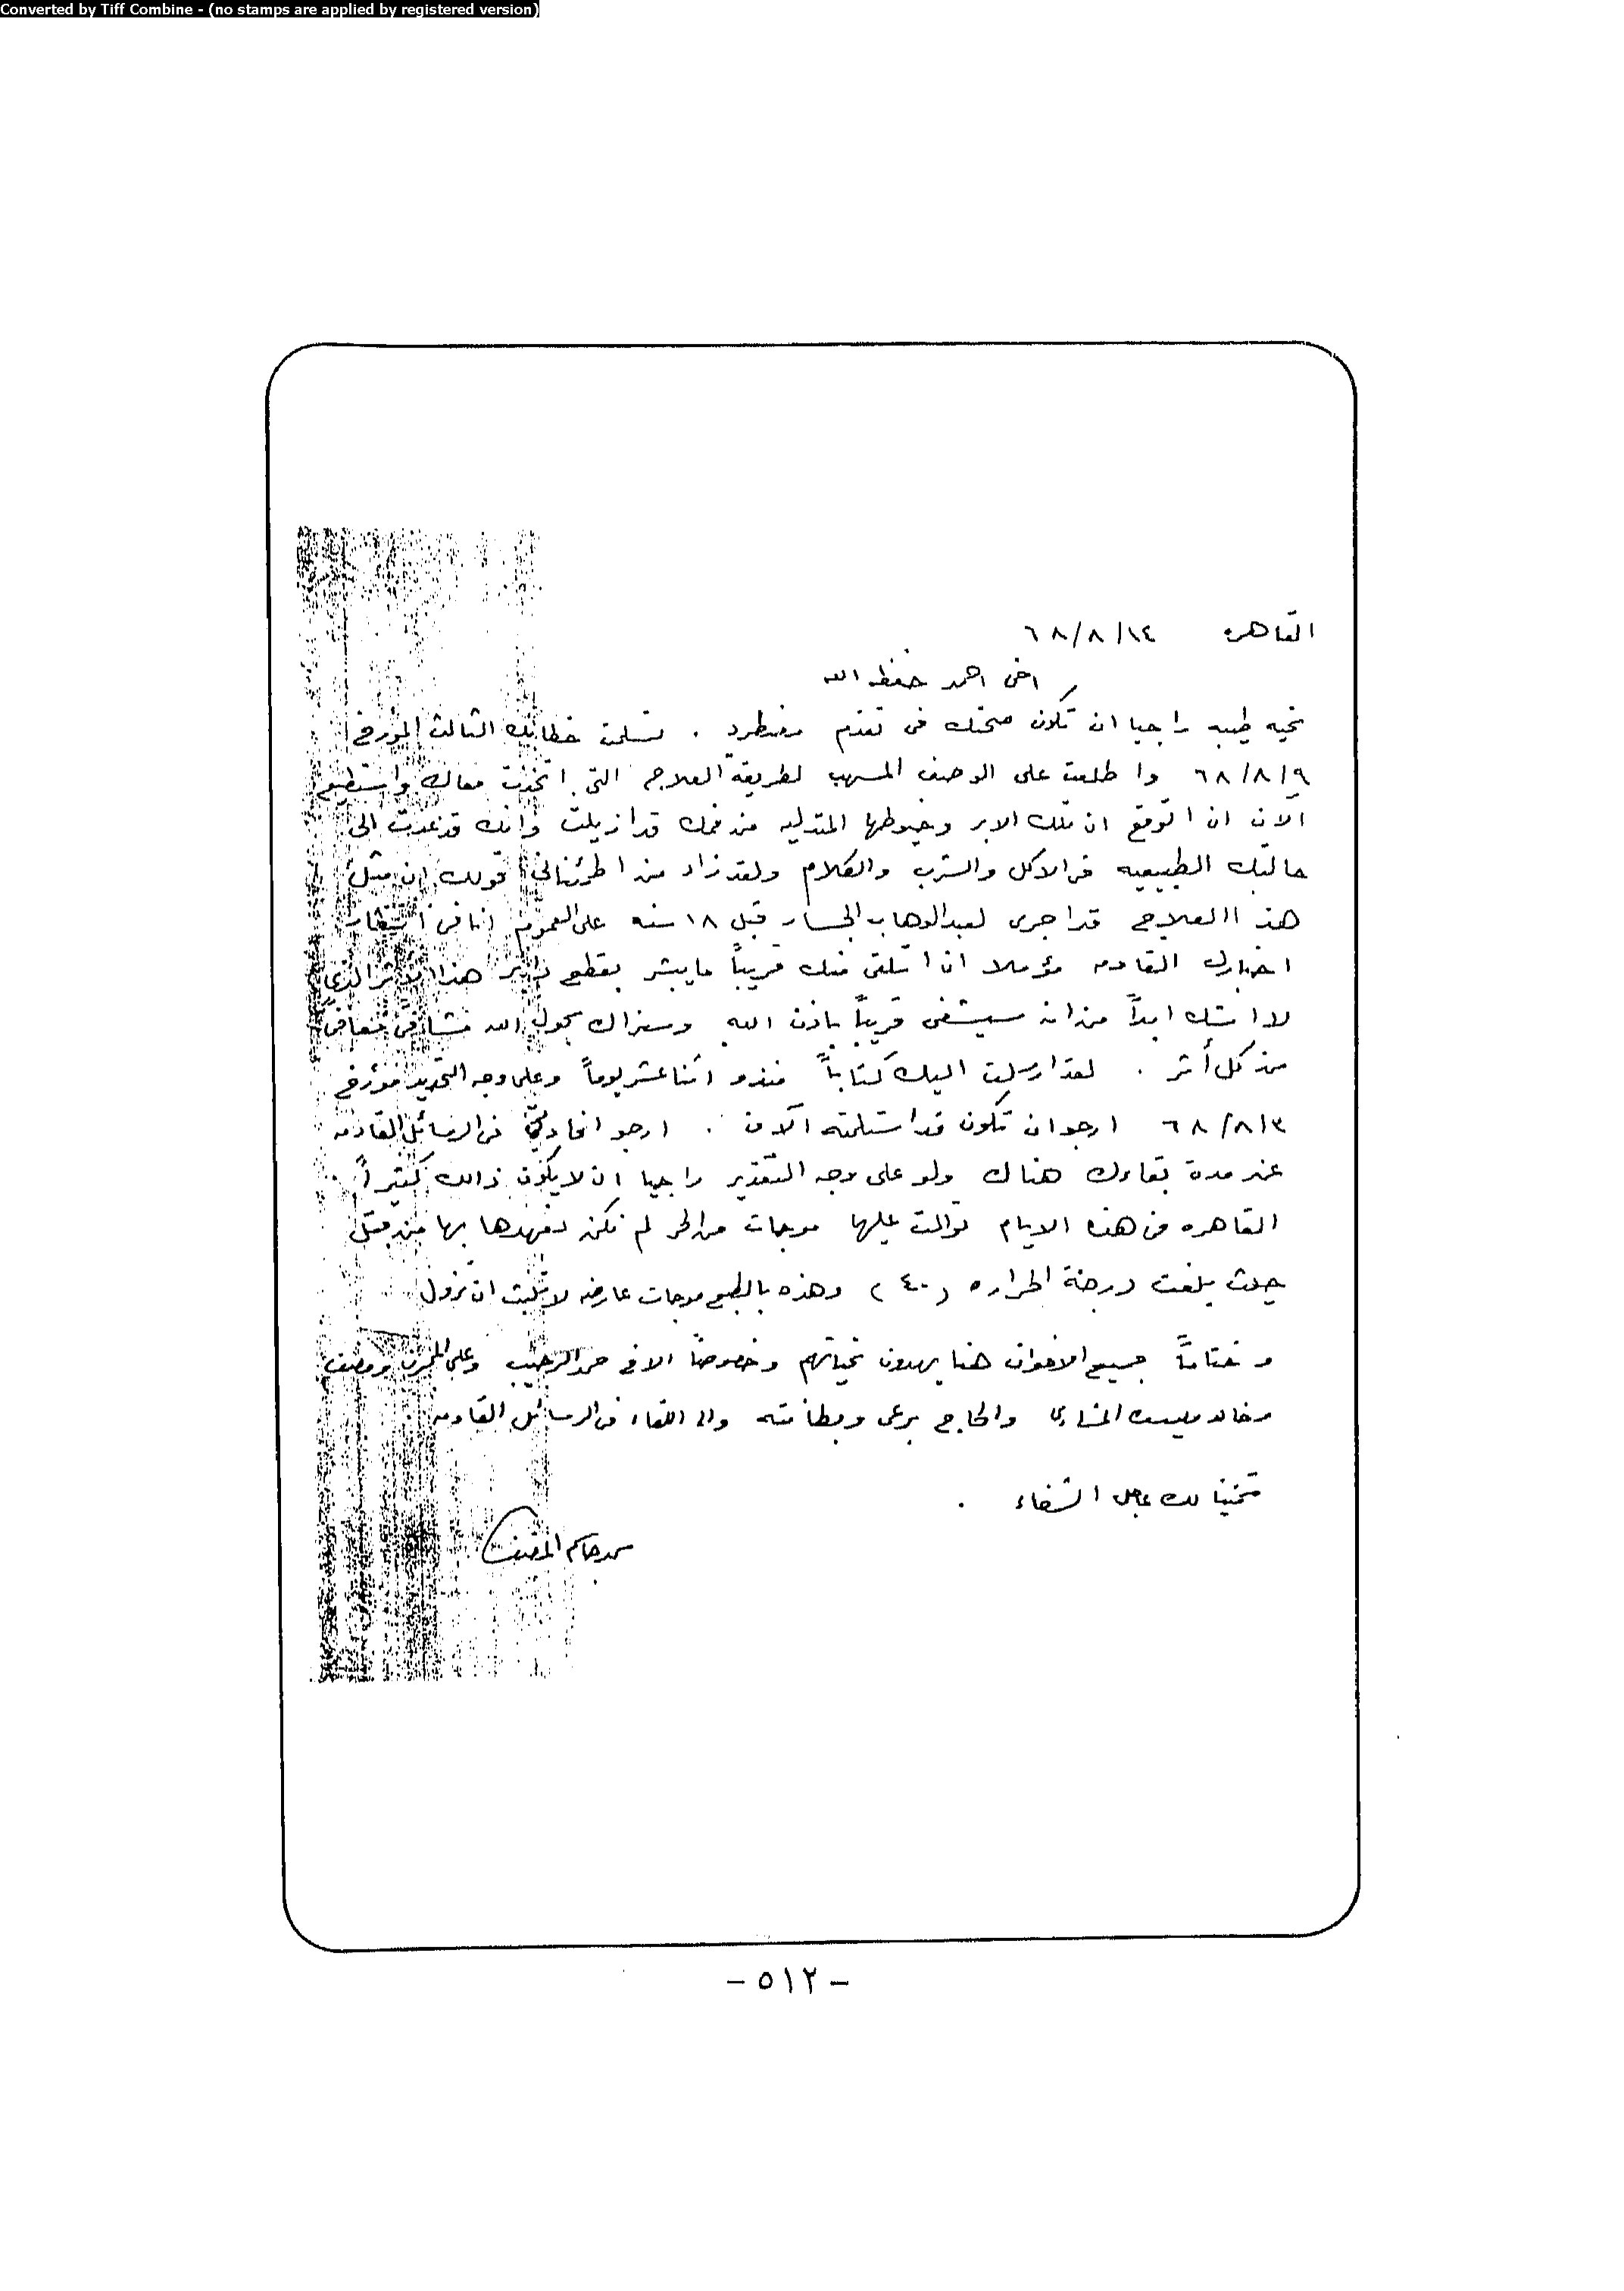 Converted by Tiff Combine - (no stamps are applied by registered version)
القاهره ٦٨/٨/١٤
اخي احمد حفظه الله
تحيه طيبه راجيا ان تكون صحتك في تقدم مضطرد . تسلمت خطابك الثالث المؤرخ
٦٨/٨/٩ واطلعت على الوصف المسهب لطريقة العلاج التي اتخذت معاك واستطيع
الآن ان اتوقع ان تلك الابر وخيوطها المتدليه من فمك قد ازيلت وانك قد عدت الى
حالتك الطبيعيه في الاكل والشرب والكلام ولقد زاد من اطمئناني قولك ان مثل
هذا العلاج قد اجري لعبدالوهاب الجسار قبل ١٨ سنه على العموم انا في انتظار
اخبارك القادمه مؤملا ان اتلقى منك قريباً ما يبشر بقطع دابر هذا الاثر الذي
لا اشك ابداً من انه سيشفى قريباً باذن الله وسنراك بحول الله مشافى معافى
من كل أثر . لقد ارسلت اليك كتاباً منذ اثنا عشر يوماً وعلى وجه التحديد مؤرخ
٦٨/٨/٣ ارجو ان تكون قد استلمته الآن . ارجو افادتي في الرسائل القادمه
عن مدة بقاءك هناك ولو على وجه التقدير راجيا ان لا يكون ذالك كثيراً
القاهره في هذه الايام توالت عليها موجات من الحر لم تكن نعهدها بها من قبل
حيث بلغت درجة الحراره (٤٠) وهذه بالطبع موجات عارضه لا تلبث ان تزول
وختاماً جميع الاخوان هنا يهدون تحياتهم وخصوصاً الاخ حمد الرجيب وعلي
وخالد المشاري والحاج مرعي وبطانته والى اللقاء في الرسائل القادمه
متمنيا لك عاجل الشفاء .
- ٥١٢ -